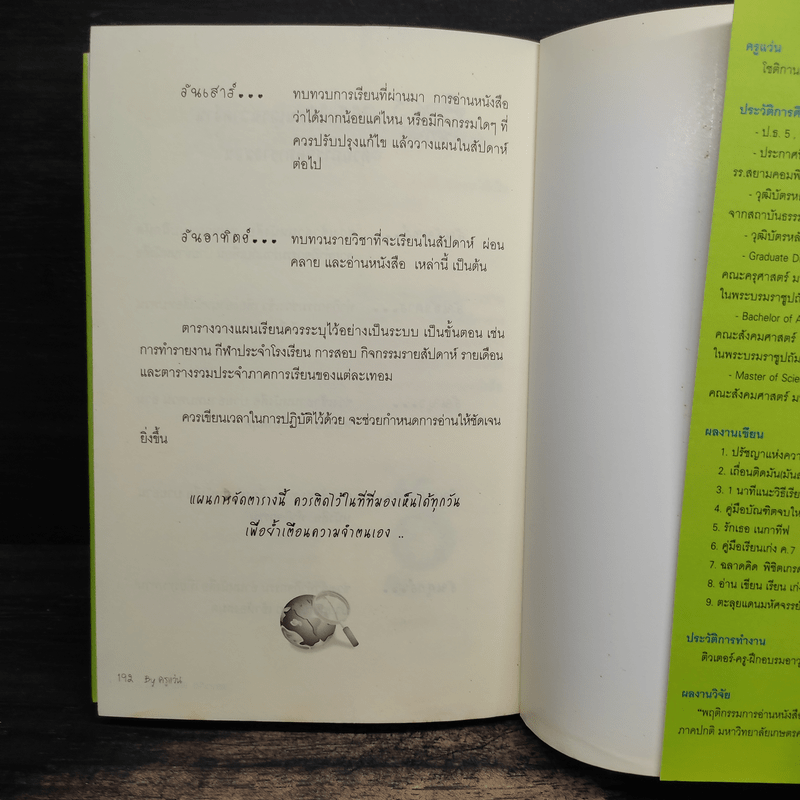 วันเสาร์... ทบทวบการเรียนที่ผ่านมา การอ่านหนังสือ
ว่าได้มากน้อยแค่ไหน หรือมีกิจกรรมใดๆ ที่
ควรปรับปรุงแก้ไข แล้ววางแผนในสัปดาห์
ต่อไป
วันอาทิตย์... ทบทวนรายวิชาที่จะเรียนในสัปดาห์ ผ่อน
คลาย และอ่านหนังสือ เหล่านี้ เป็นต้น
ตารางวางแผนเรียนควรระบุไว้อย่างเป็นระบบ เป็นขั้นตอน เช่น
การทำรายงาน กีฬาประจำโรงเรียน การสอบ กิจกรรมรายสัปดาห์ รายเดือน
และตารางรวมประจำภาคการเรียนของแต่ละเทอม
ควรเขียนเวลาในการปฏิบัติไว้ด้วย จะช่วยกำหนดการอ่านให้ชัดเจน
ยิ่งขึ้น
แผนการจัดตารางนี้ ควรติดไว้ในที่ที่มองเห็นได้ทุกวัน
เพื่อย้ำเตือนความจำตนเอง ..
192 By ครูแว่น
ครูแว่น
โชติกาน
ประวัติการศึ
- ป.ธ. 5 .
- ประกาศ
รร.สยามคอมพิ
- วุฒิบัตรหล
จากสถาบันธรร
- วุฒิบัตรหลั
- Graduate Di
คณะครุศาสตร์ ม
ในพระบรมราชูปถั
- Bachelor of A
คณะสังคมศาสตร์
ในพระบรมราชูปถัม
- Master of Scie
คณะสังคมศาสตร์ ม
ผลงานเขียน
1. ปรัชญาแห่งควา
2. เถื่อนติดมัน(มัน
3. 1 นาทีแนะวิธีเรีย
4. คู่มือบัณฑิตจบให
5. รักเธอ เนกาทีฟ
6. คู่มือเรียนเก่ง ค.7
7. ฉลาดคิด พิชิตเกรด
8. อ่าน เขียน เรียน เก่ง
9. ตะลุยแดนมหัศจรรย์
ประวัติการทำงาน
ติวเตอร์-ครู-ฝึกอบรมอาวุ
ผลงานวิจัย
"พฤติกรรมการอ่านหนังสือ
ภาคปกติ มหาวิทยาลัยเกษตรศ